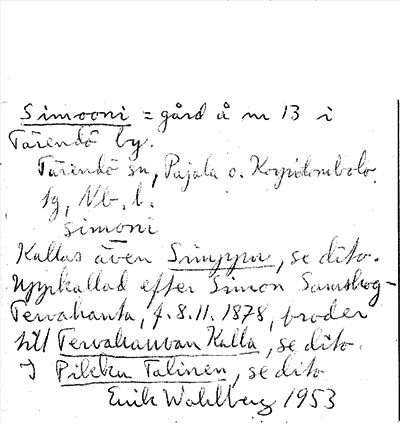 Simooni = gård å nr 13 i
Tärendö by.
Tärendö sn, Pajala o. Korpilombolo
tg, Nb. l.
simōni
Kallas även Simppu, se dito.
Uppkallad efter Simon Samskog-
Tervahauta, f. 8.11. 1878, broder
till Tervahauvan Kalla, se dito.
J Pilekn Talinen, se dito
Erik Wahlberg 1953